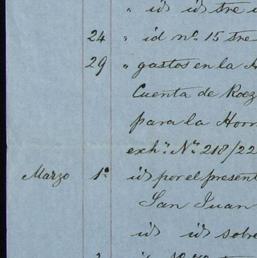 " id id tre
24 " id nº 15 tre
29 " gastos en la H
Cuenta de Roez
para la Horn
exhº Nº 218/22
Marzo 1º id por el present
San Juan
id id sobre